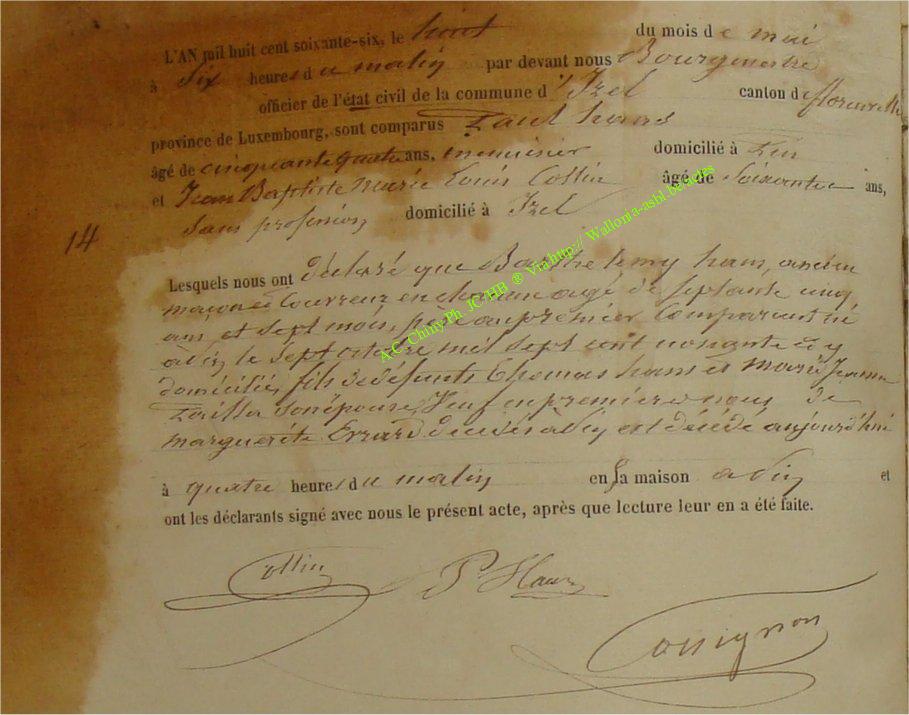 L'AN mil huit cent soixante-six, le huit du mois de mai
à six heures du matin par devant nous Bourgmestre
officier de l'état civil de la commune d'Izel canton de florenville
province de Luxembourg, sont comparus Paul hans
âgé de cinquante quatre ans, menuisier domicilié à
et Jean Baptiste Marie Louis Collin âgé de soixante ans,
sans profession domicilié à Izel
14
Lesquels nous ont déclaré que hans, ancien
maçon et Couvreur en agé de septante cinq
ans et sept mois, père au premier Comparent né
à le sept octobre mil sept cent nonante et y
domicilié, fils de défunts Thomas hans et Marie Jeanne
son épouse, Veuf en premières de
marguerite Errard décédée a est décédé aujourd'hui
à quatre heures du matin en sa maison a et
ont les déclarants signé avec nous le présent acte, après que lecture leur en a été faite.
Collin P. Hans
A.C Chiny Ph JC HB ® Via http:// Wallonia-asbl.be actes